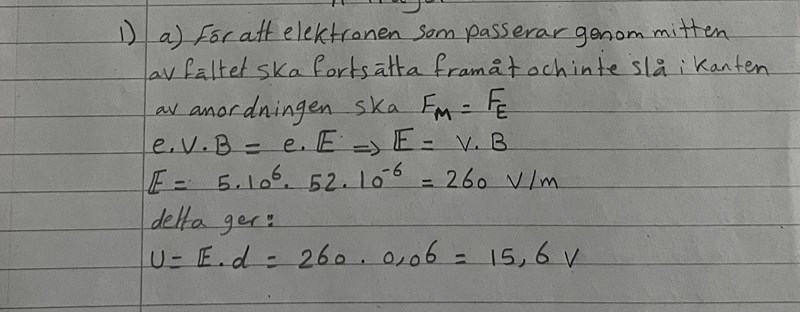 1) a) För att elektronen som passerar genom mitten
av fältet ska fortsätta framåt och inte slå i kanten
av anordningen ska F_M = F_E
e.V.B = e.E => E = V.B
E = 5.10⁶. 52.10⁻⁶ = 260 V/m
detta ger:
U = E.d = 260 . 0,06 = 15,6 V